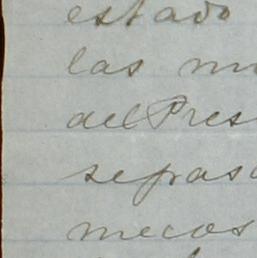 estado
las mu
del Pres
se pasa
mecos